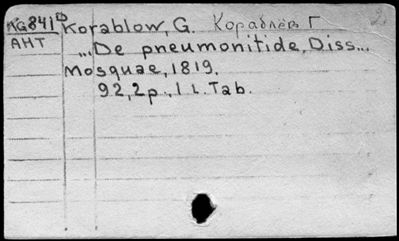 KG841D Korablow, G. Кораблев Г
AHT ...De pneumonitide, Diss...
Mosquae, 1819.
92, 2p., 1 L. Tab.